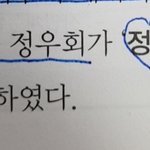 정우회가 '정
하였다.